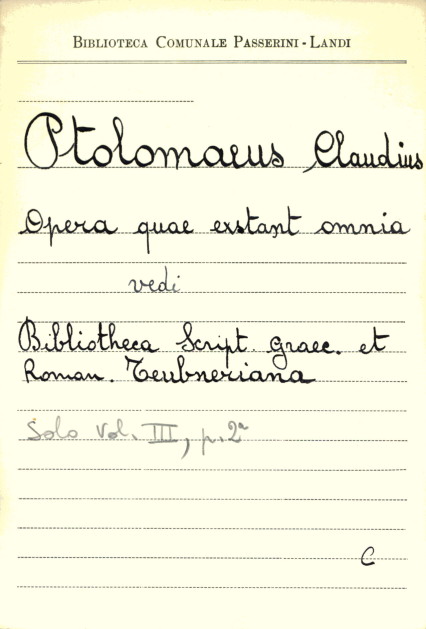 Biblioteca Comunale Passerini - Landi
Ptolomaeus Claudius
Opera quae exstant omnia
vedi
Bibliotheca Script. graec. et
Roman. Teubneriana
Solo Vol. III, p. 2ª
C